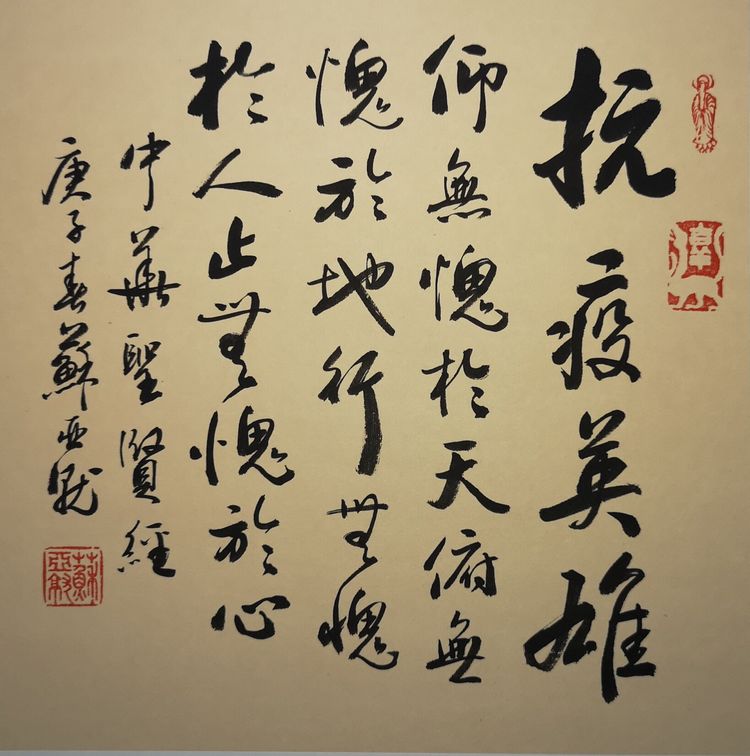 抗疫英雄
仰無愧於天俯無
愧於地行無愧
於人止無愧於心
中華聖賢經
庚子春蘇亚